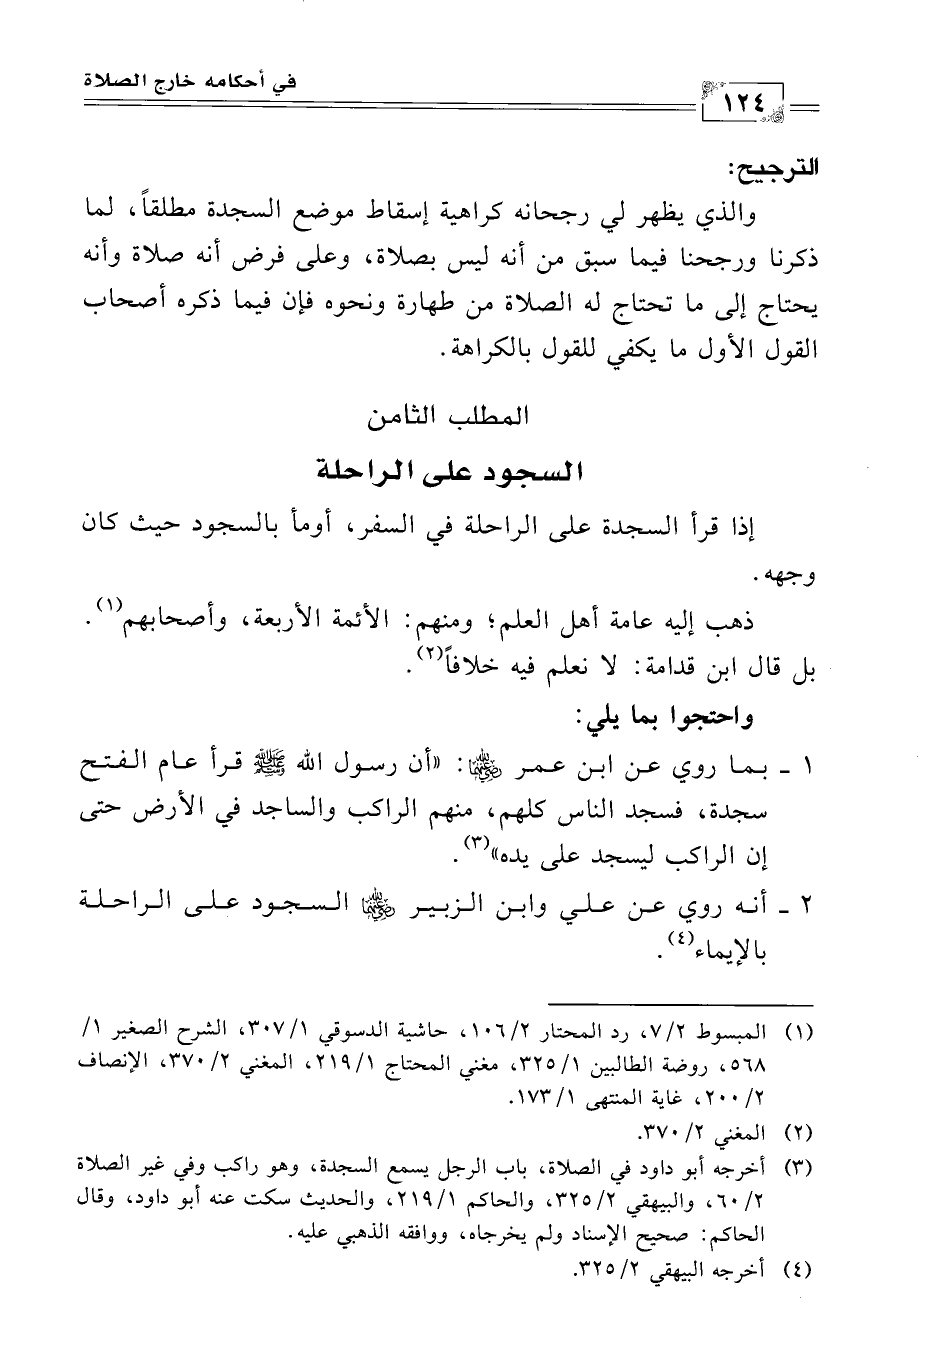 في أحكامه خارج الصلاة
١٢٤
الترجيح:
والذي يظهر لي رجحانه كراهية إسقاط موضع السجدة مطلقاً، لما
ذكرنا ورجحنا فيما سبق من أنه ليس بصلاة، وعلى فرض أنه صلاة وأنه
يحتاج إلى ما تحتاج له الصلاة من طهارة ونحوه فإن فيما ذكره أصحاب
القول الأول ما يكفي للقول بالكراهة.
المطلب الثامن
السجود على الراحلة
إذا قرأ السجدة على الراحلة في السفر، أومأ بالسجود حيث كان
وجهه.
ذهب إليه عامة أهل العلم؛ ومنهم: الأئمة الأربعة، وأصحابهم(١).
بل قال ابن قدامة: لا نعلم فيه خلافاً(٢).
واحتجوا بما يلي:
١ ـ بما روي عن ابن عمر رضي الله عنهما: «أن رسول الله ﷺ قرأ عام الفتح
سجدة، فسجد الناس كلهم، منهم الراكب والساجد في الأرض حتى
إن الراكب ليسجد على يده»(٣).
٢ ـ أنه روي عن علي وابن الزبير رضي الله عنهما السجود على الراحلة
بالإيماء(٤).
(١) المبسوط ٧/٢، رد المحتار ١٠٦/٢، حاشية الدسوقي ٣٠٧/١، الشرح الصغير ١/
٥٦٨، روضة الطالبين ٣٢٥/١، مغني المحتاج ٢١٩/١، المغني ٣٧٠/٢، الإنصاف
٢٠٠/٢، غاية المنتهى ١٧٣/١.
(٢) المغني ٣٧٠/٢.
(٣) أخرجه أبو داود في الصلاة، باب الرجل يسمع السجدة، وهو راكب وفي غير الصلاة
٦٠/٢، والبيهقي ٣٢٥/٢، والحاكم ٢١٩/١، والحديث سكت عنه أبو داود، وقال
الحاكم: صحيح الإسناد ولم يخرجاه، ووافقه الذهبي عليه.
(٤) أخرجه البيهقي ٣٢٥/٢.